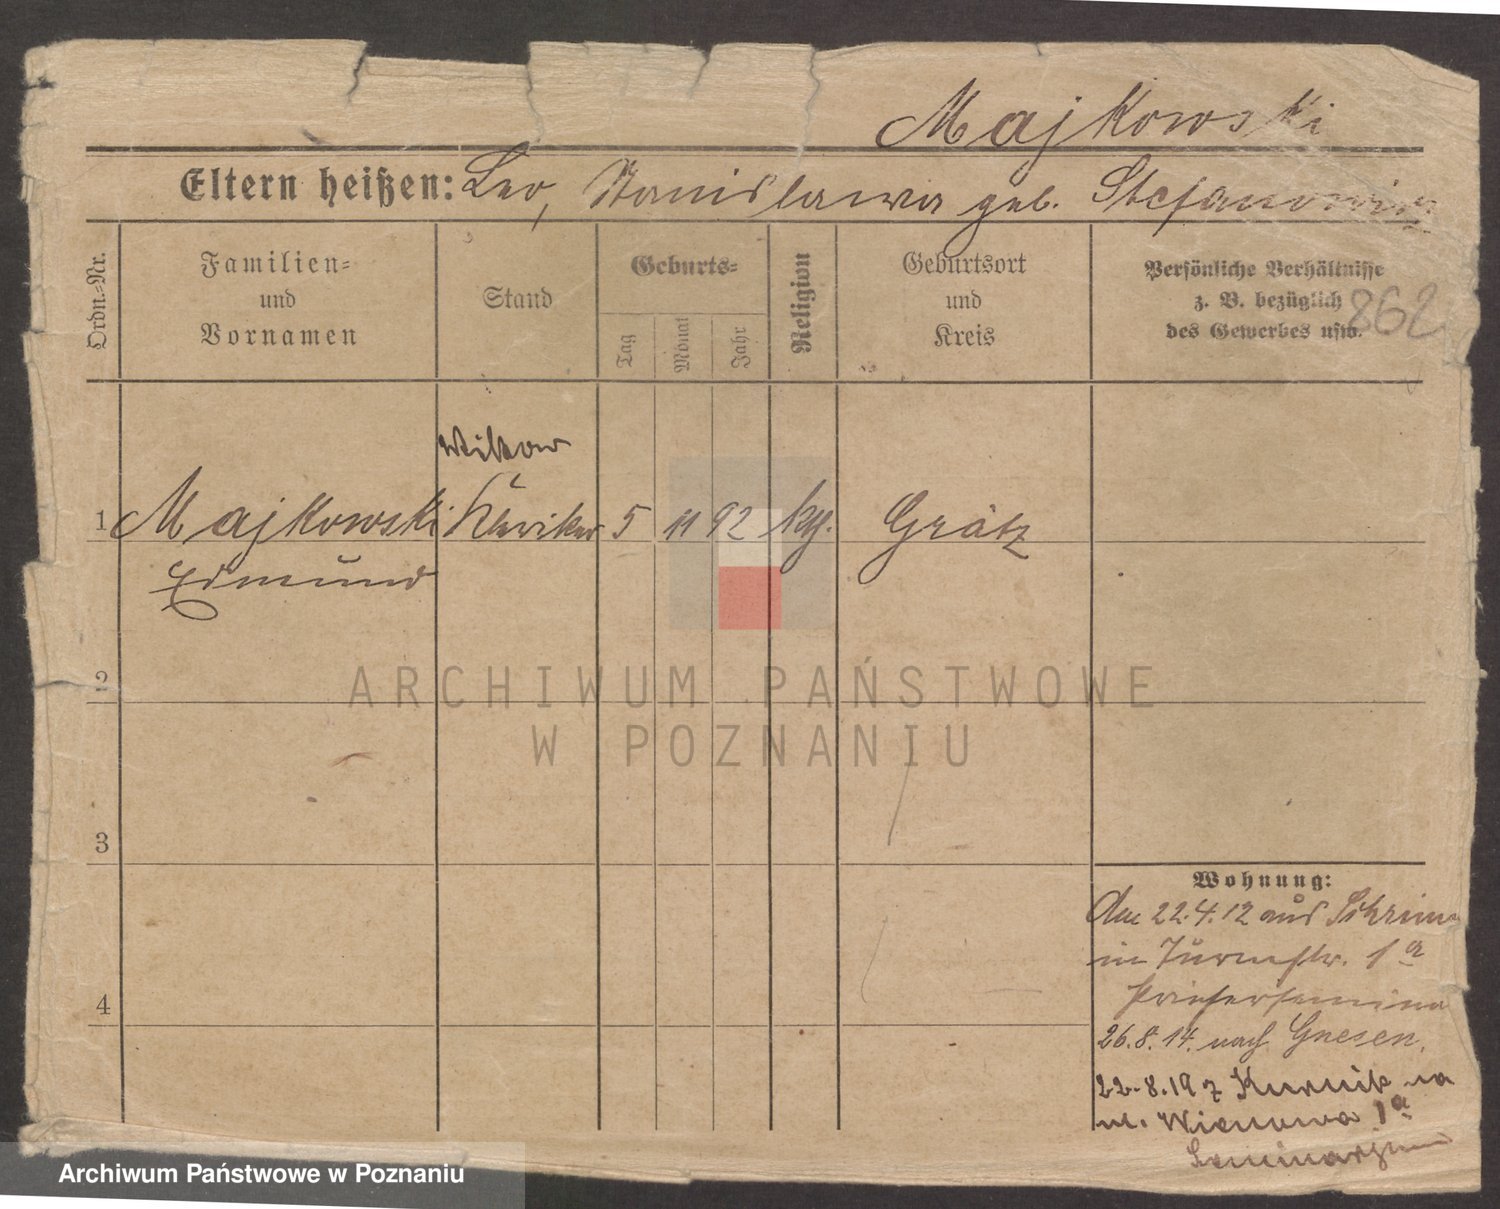 Majkowski
Eltern heißen: Leo, Stanislawa geb. Stefanowicz
Ordn.-Nr.
Familien-
und
Vornamen
Stand
Geburts-
Tag
Monat
Jahr
Religion
Geburtsort
und
Kreis
Persönliche Verhältnisse
z. B. bezüglich
des Gewerbes usw.
862
Wikar
1 Majkowski Kleriker 5 11 92 kath. Grätz
Edmund
2
3
4
Wohnung:
Am 22.4.12 aus Schrimm
in Turmstr. 1a
Priestersemina
26.8.14. nach Gnesen.
22.8.19 z Kurnik na
ul. Wieżowa 1a
Seminarjum
ARCHIWUM PAŃSTWOWE
W POZNANIU
Archiwum Państwowe w Poznaniu